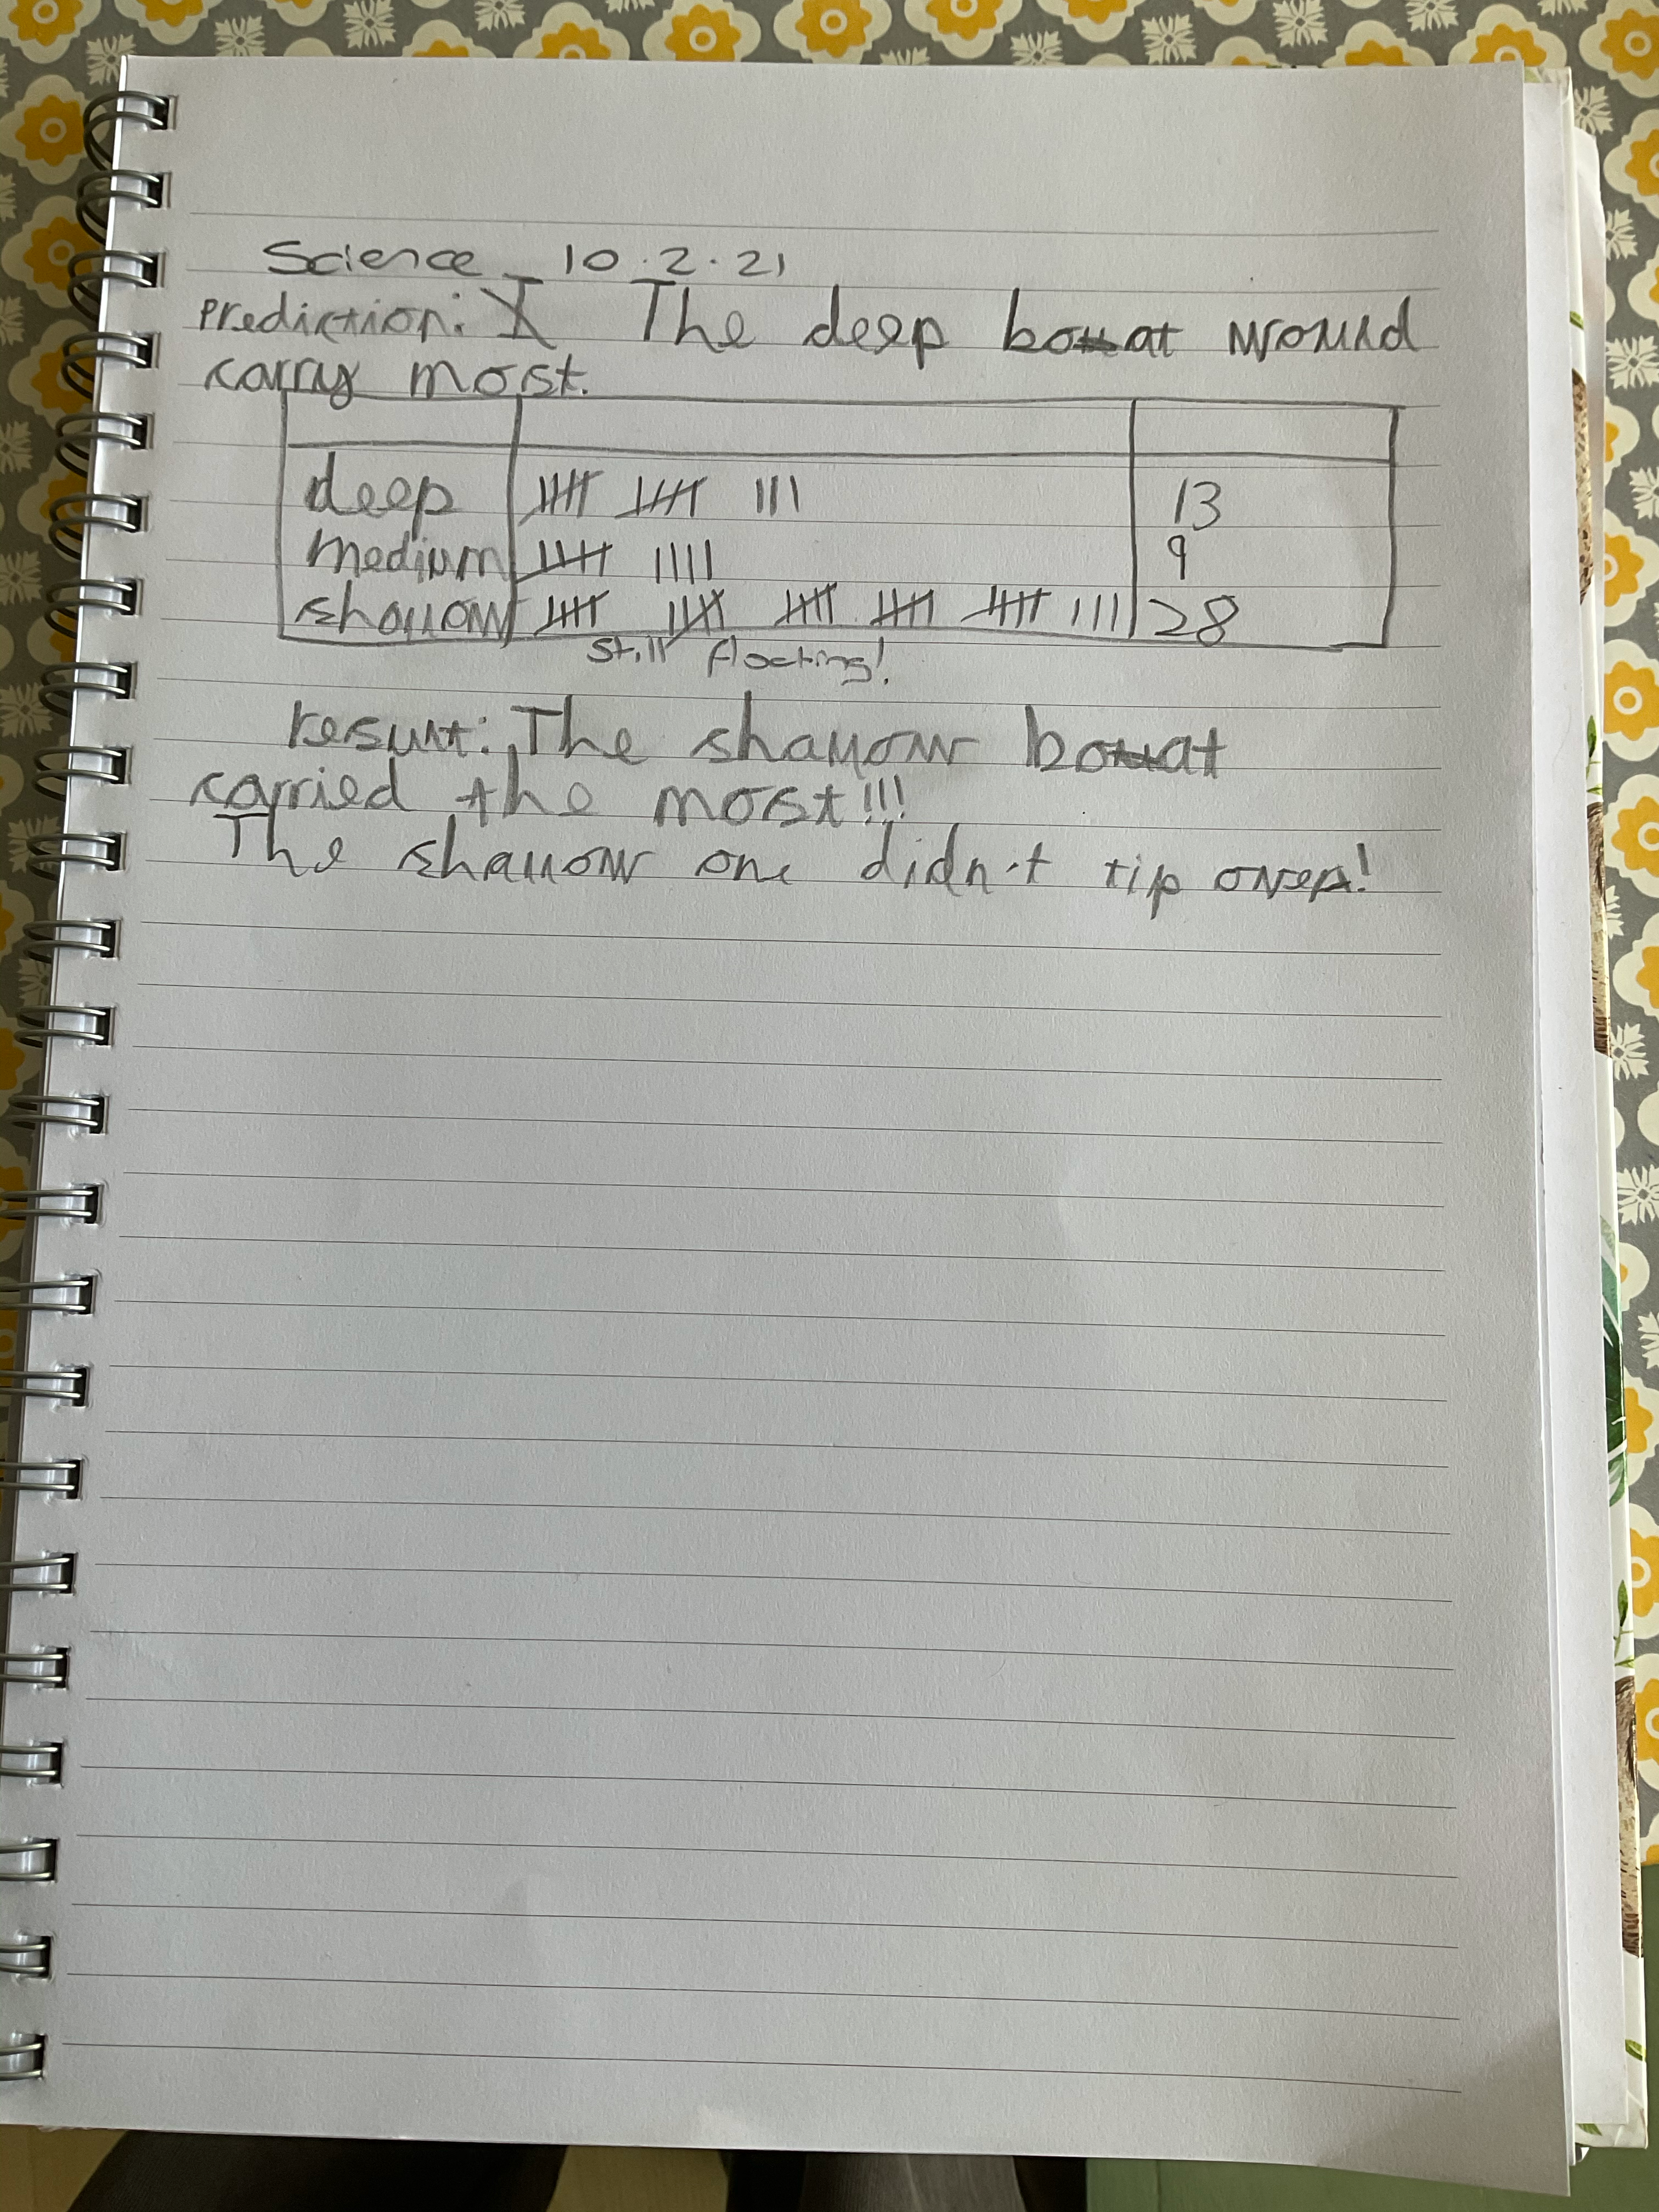 Science 10.2.21
Prediction: I The deep boat would
carry most.
deep 𝍸 𝍸 III 13
medium 𝍸 IIII 9
shallow 𝍸 𝍸 𝍸 𝍸 𝍸 III 28
still floating!
result: The shallow boat
carried the most!!!
The shallow one didn't tip over!